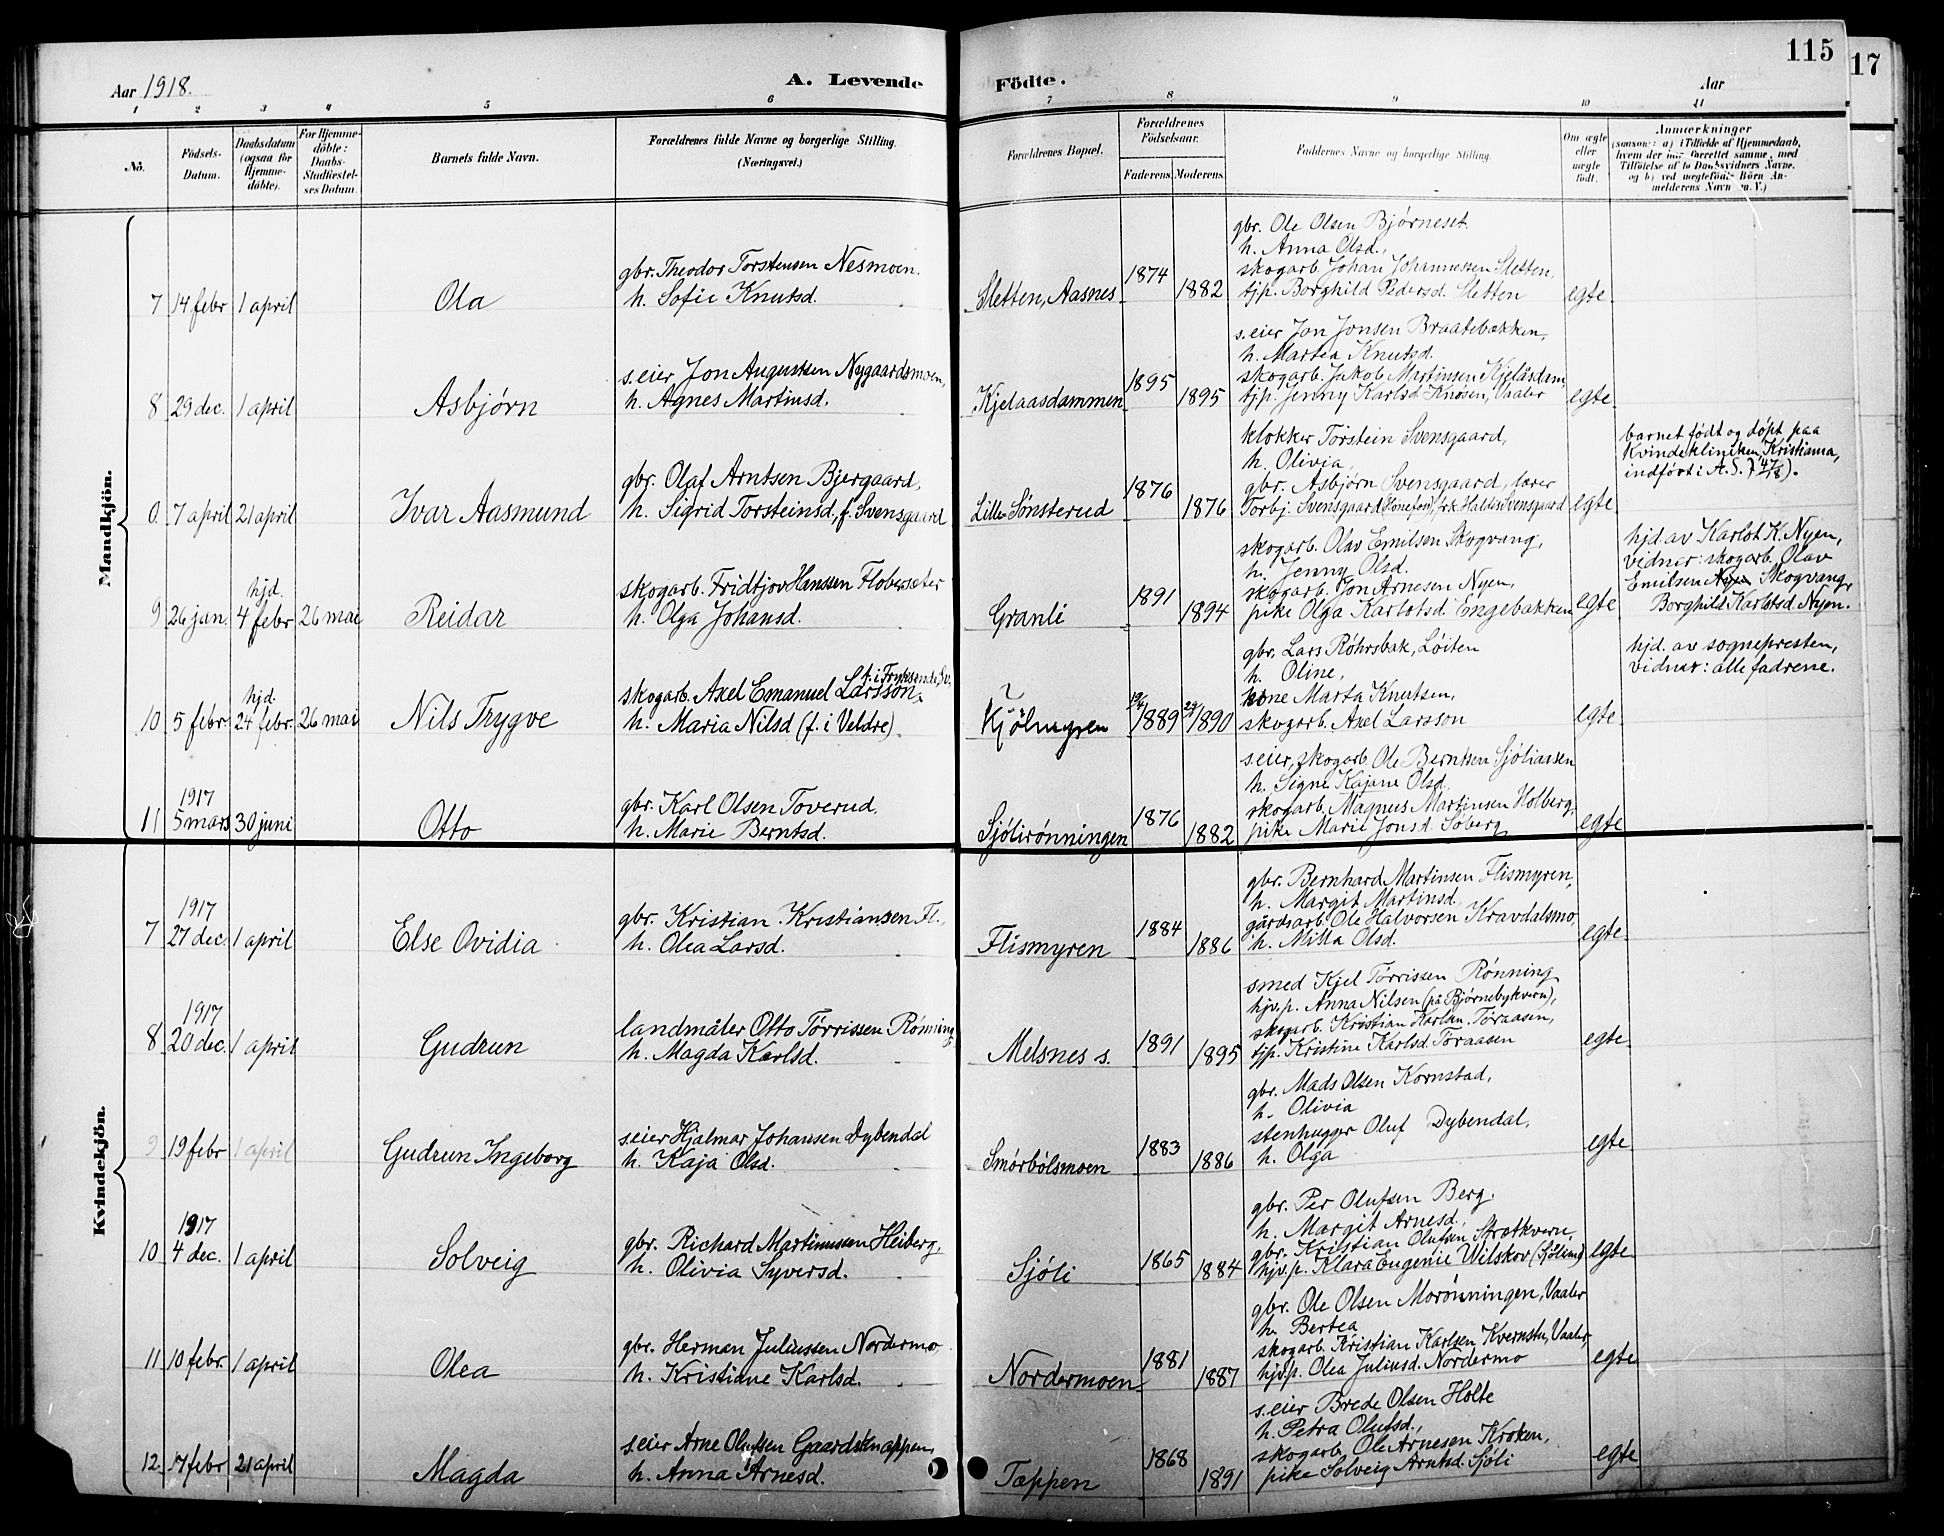 115
17
Aar 1918.
A. Levende Födte.
Aar
1 2 3 4 5 6 7 8 9 10 11
No.
Födsels-Datum.
Daabsdatum (ogsaa for Hjemme-döbte).
For Hjemme-döbte: Daabs-Stadfæstel-ses Datum
Barnets fulde Navn.
Forældrenes fulde Navne og borgerlige Stilling. (Næringsvei.)
Forældrenes Bopæl.
Forældrenes Födselsaar.
Faderens. Moderens.
Faddernes Navne og borgerlige Stilling.
Om ægte eller uægte födt.
Anmærkninger
Mandkjön.
gbr. Ole Olsen Bjørneset.
h. Anna Olsd.,
gbr. Theodor Torstensen Nesmoen. 1874 skogarb. Johan Johannessen Sletten,
7 14 febr 1 april Ola h. Sofie Knutsd. Sletten, Aasnes 1882 tjp. Borghild Pedersd. Sletten egte
s.eier Jon Jonsen Braatebakken,
h. Martea Knutsd.
s.eier Jon Augustsen Nygaardsmoen, 1895 skogarb. Jakob Martinsen Kjelåsdam
8 29 dec. 1 april Asbjørn h. Agnes Martinsd. Kjelaasdammen 1895 tjp. Jenny Karlsd. Knøsen, Vaaler egte
klokker Torstein Svensgaard, barnet født og døpt paa
h. Olivia, Kvindekliniken, Kristiania,
gbr. Olaf Arntsen Bjergaard, 1876 gbr. Asbjørn Svensgaard, lærer indført i A.S.
0 7 april 21 april Ivar Aasmund h. Sigrid Torsteinsd, f. Svensgaard Lille Sønsterud 1876 Torbj. Svensgaard (Hönefos), frk. Haldis Svensgaard egte
skogarb. Olav Emilsen Skogvang, hjd. av Karlot K. Nyen,
h. Jenny Olsd. vidner: skogarb. Olav
hjd. skogarb. Fridtjov Hanssen Floberseter 1891 skogarb. Jon Arnesen Nyen, Emilsen Nyen Skogvang,
9 26 jan. 4 febr 26 mai Reidar h. Olga Johansd. Granli 1894 pike Olga Karlotsd. Engebakken egte Borghild Karlotsd. Nyen.
gbr. Lars Röhrsbak, Løiten hjd. av sognepresten,
h. Oline, vidner: alle fadrene.
hjd. skogarb. Axel Emanuel Larsson, kone Marta Knutsen,
10 5 febr. 24 febr. 26 mai Nils Trygve h. Maria Nilsd (f. i Veldre). Kjølmyren 1889 1890 skogarb. Axel Larsson egte
s.eier, skogarb. Ole Berntsen Sjøliaasen
h. Signe Kajane Olsd.
1917 gbr. Karl Olsen Toverud, 1876 skogarb. Magnus Martinsen Holberg,
11 5 mars 30 juni Otto h. Marie Berntsd. Sjølirønningen 1882 pike Marie Jonsd. Søberg egte
Kvindekjön.
gbr. Bernhard Martinsen Flismyren,
h. Margit Martinsd,
1917 gbr. Kristian Kristiansen Fl., 1884 gårdsarb. Ole Halvorsen Kravdalsmo,
7 27 dec. 1 april Else Ovidia h. Olea Larsd. Flismyren 1886 h. Milla Olsd. egte
smed Kjel Tørrissen Rønning
hjv.p. Anna Nilsen (på Bjørnebykvern),
1917 landmåler Otto Tørrissen Rønning, 1891 skogarb. Kristian Karlsen Toraasen,
8 20 dec. 1 april Gudrun h. Magda Karlsd. Melsnes s. 1895 tjp. Kristine Karlsd. Toraasen egte
gbr. Mads Olsen Kornstad,
h. Olivia
s.eier Hjalmar Johansen Dybendal 1883 stenhugger Oluf Dybendal,
9 19 febr 1 april Gudrun Ingeborg h. Kaja Olsd. Smørbølsmoen 1886 h. Olga egte
gbr. Per Olufsen Berg,
h. Margit Arnesd.,
1917 gbr. Richard Martinussen Heiberg, 1865 gbr. Kristian Olufsen Strætkvern,
10 4 dec. 1 april Solveig h. Olivia Syversd. Sjøli 1884 hjv.p. Klara Eugenie Wilskov (Sjølimo) egte
gbr. Ole Olsen Morønningen, Vaaler
h. Bertea
gbr. Herman Juliussen Nordermo 1881 skogarb. Kristian Karlsen Kvernstu, Vaaler,
11 10 febr. 1 april Olea h. Kristiane Karlsd. Nordermoen 1887 hjv.p. Olea Juliusd. Nordermo egte
s.eier Brede Olsen Holte
h. Petra Olufsd.,
s.eier Arne Olufsen Gaardsknappen, 1868 skogarb. Ole Arnesen Kroken,
12 17 febr 21 april Magda h. Anna Arnesd. Tæppen 1891 pike Solveig Arntsd. Sjøli egte